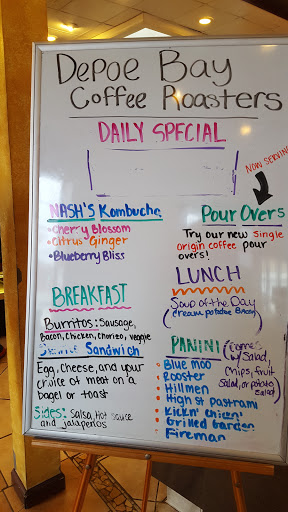 Depoe Bay
Coffee Roasters
DAILY SPECIAL
NOW SERVING
NASH'S Kombucha
• Cherry Blossom
• Citrus Ginger
• Blueberry Bliss
Pour Overs
Try our new single
origin coffee pour
overs!
LUNCH
Soup of the Day
BREAKFAST
Burritos: Sausage,
Bacon, Chicken, Chorizo, veggie
Sandwich
Egg, Cheese, and your
choice of meat on a
bagel or toast
Sides: Salsa, Hot sauce
and jalapeños
PANINI (comes
w/ Salad,
Chips, fruit
Salad, or potato
Salad)
• Blue Moo
• Rooster
• Hillmen
• High St Pastrami
• Kickn' Chicen'
• Grilled Garden
• Fireman